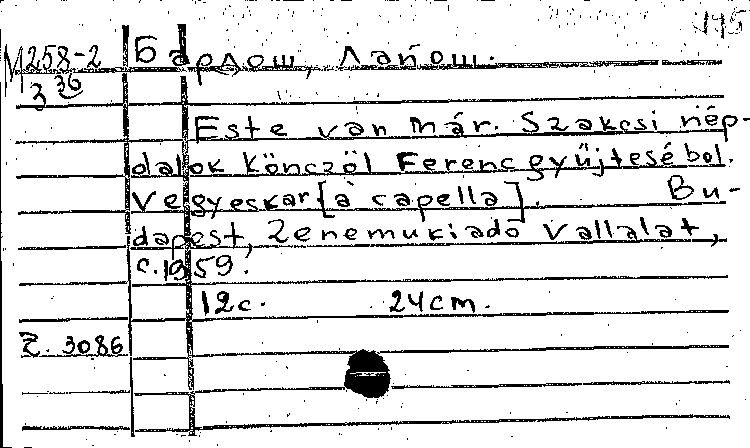 175
М258-2 Бардош, Лайош.
3 36
Este van már. Szakcsi nép-
dalok Könczöl Ferenc gyűjtesébol.
Vegyeskar [a capella]. Bu-
dapest, Zenemukiadó Vallalat,
c.1959.
12c. 24cm.
Z. 3086